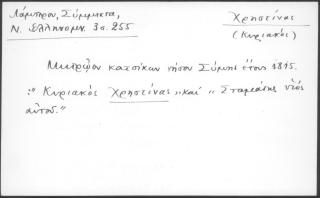 Λάμπρου, Σύμμικτα,
Ν. Ελληνομν. 3 σ. 255
Χρηστίνας
(Κυριακός)
Μητρῷον κατοίκων νήσου Σύμης ἔτους 1815.
:" Κυριακός Χρηστίνας " καί " Σταμάτης υἱός
αὐτοῦ."